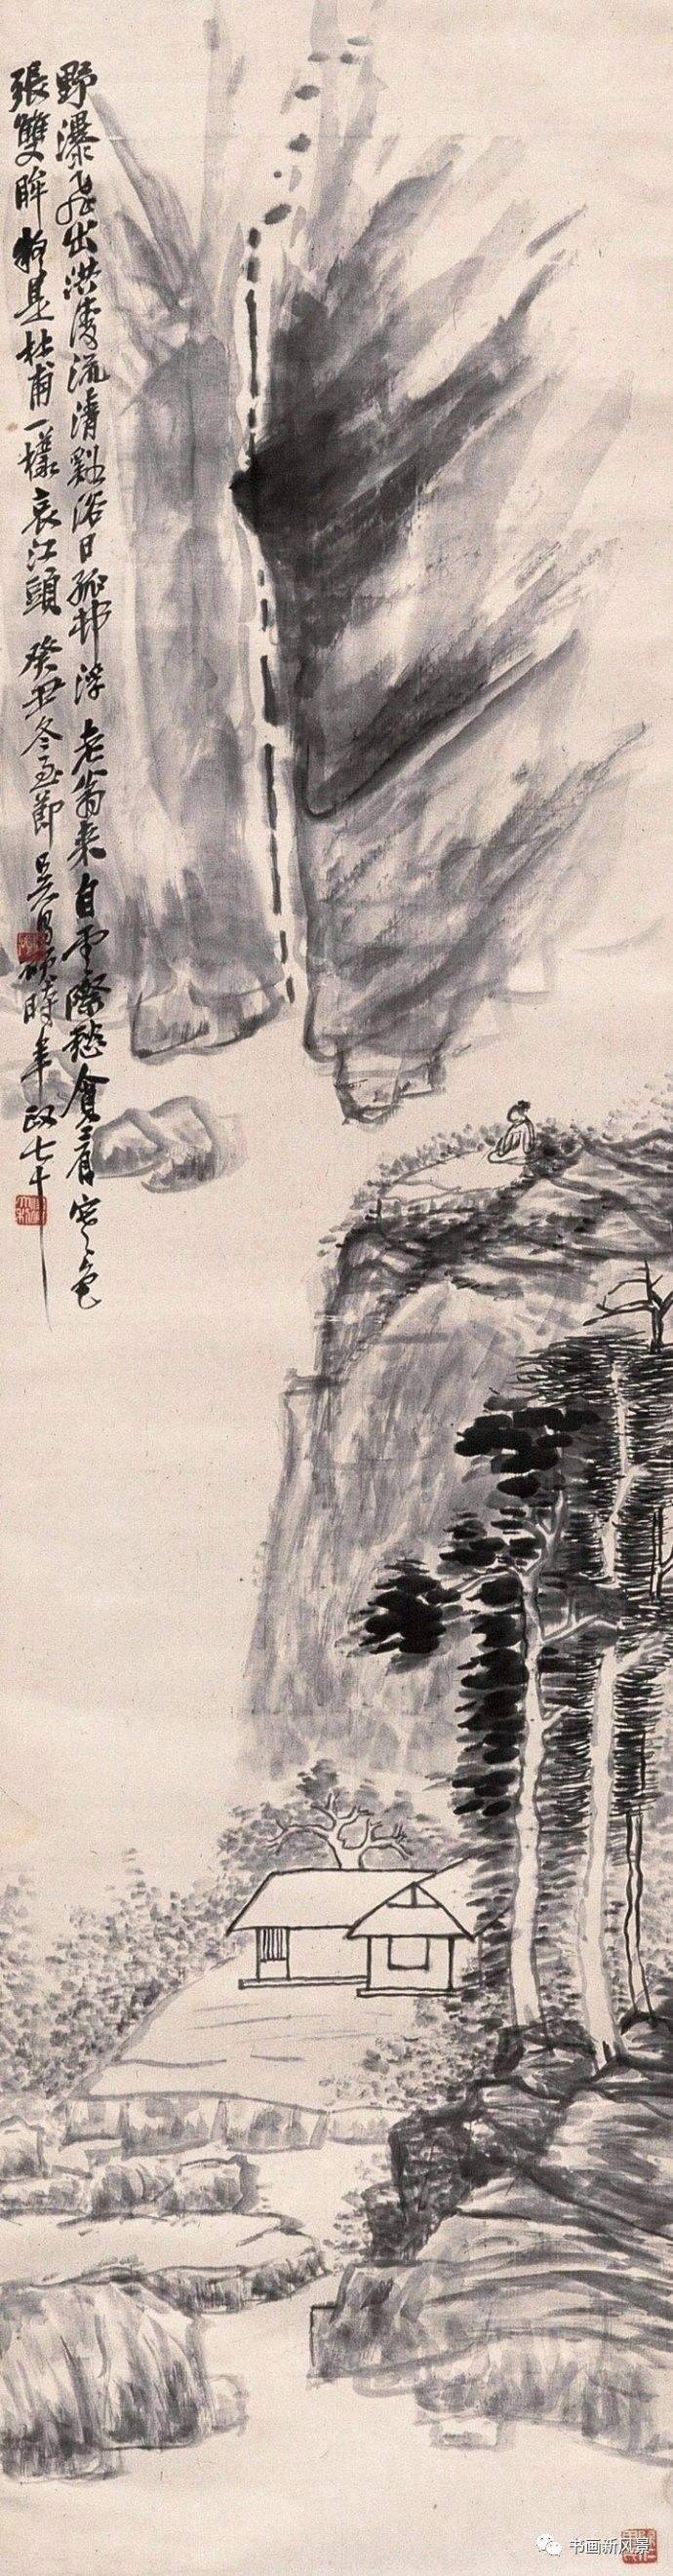 野瀑飛出洪濤流清谿浴日孤村浮老翁來自雲際愁貪看寒色
張雙眸猶是杜甫一樣哀江頭癸丑冬至節吳昌碩時年政七十
书画新风景